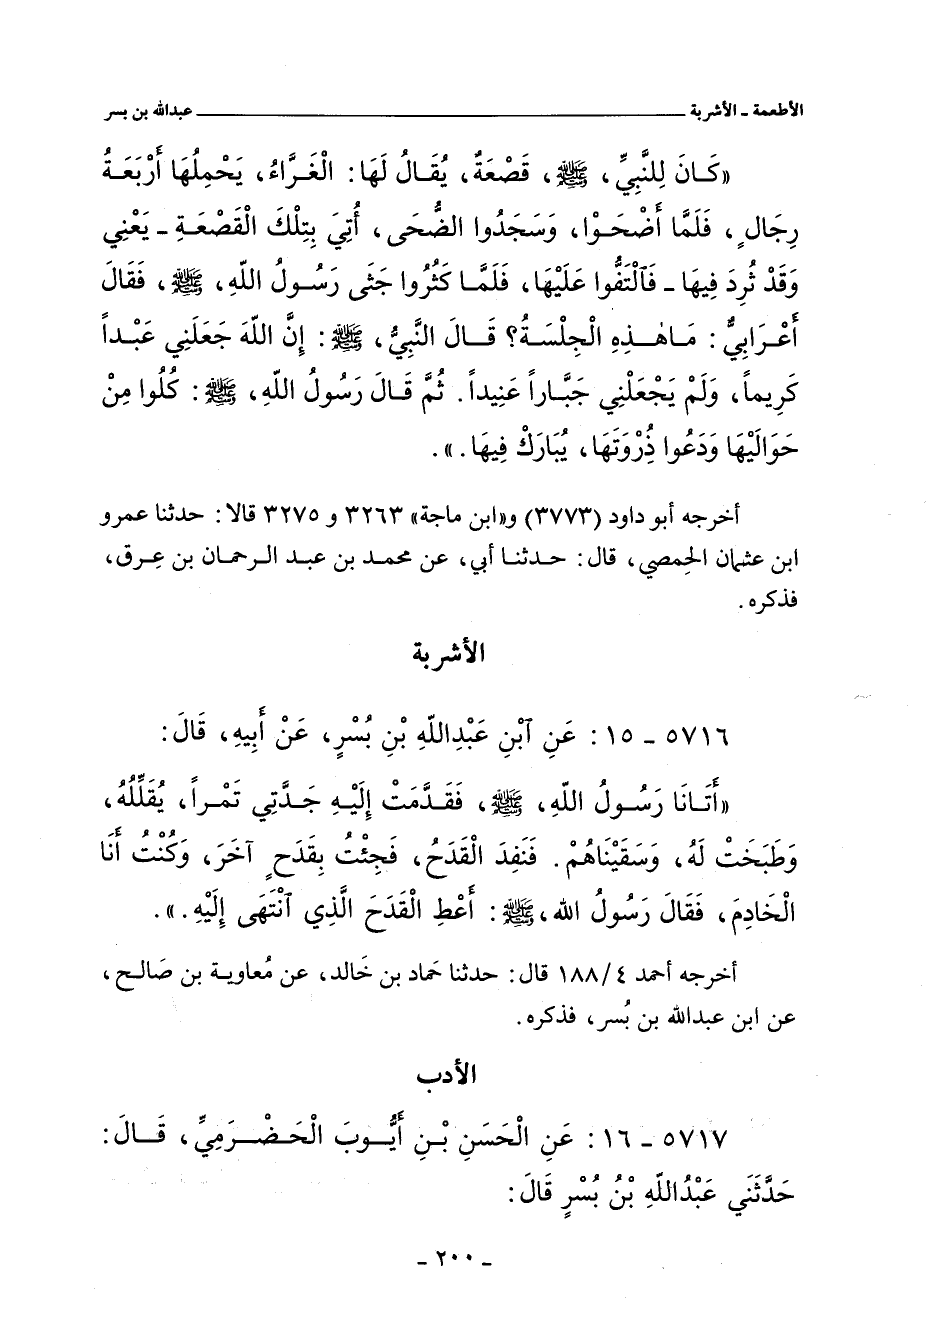 الأطعمة ـ الأشربة ـــــــــــــــــــــ عبدالله بن بسر
«كَانَ لِلنَّبِيِّ، ﷺ، قَصْعَةٌ، يُقَالُ لَهَا: الْغَرَّاءُ، يَحْمِلُهَا أَرْبَعَةُ
رِجَالٍ، فَلَمَّا أَضْحَوْا، وَسَجَدُوا الضُّحَى، أُتِيَ بِتِلْكَ الْقَصْعَةِ ـ يَعْنِي
وَقَدْ ثُرِدَ فِيهَا ـ فَآلْتَفُّوا عَلَيْهَا، فَلَمَّا كَثُرُوا جَثَى رَسُولُ اللّهِ، ﷺ، فَقَالَ
أَعْرَابِيٌّ: مَاهٰذِهِ الْجِلْسَةُ؟ قَالَ النَّبِيُّ، ﷺ: إِنَّ اللّهَ جَعَلَنِي عَبْداً
كَرِيماً، وَلَمْ يَجْعَلْنِي جَبَّاراً عَنِيداً. ثُمَّ قَالَ رَسُولُ اللّهِ، ﷺ: كُلُوا مِنْ
حَوَالَيْهَا وَدَعُوا ذُِرْوَتَهَا، يُبَارَكْ فِيهَا.».
أخرجه أبو داود (٣٧٧٣) و«ابن ماجة» ٣٢٦٣ و ٣٢٧٥ قالا: حدثنا عمرو
ابن عثمان الحِمصي، قال: حدثنا أبي، عن محمد بن عبد الرحمان بن عِرق،
فذكره.
الأشربة
٥٧١٦ ـ ١٥: عَنِ آبْنِ عَبْدِاللّهِ بْنِ بُسْرٍ، عَنْ أَبِيهِ، قَالَ:
«أَتَانَا رَسُولُ اللّهِ، ﷺ، فَقَدَّمَتْ إِلَيْهِ جَدَّتِي تَمْراً، يُقَلِّلُهُ،
وَطَبَخَتْ لَهُ، وَسَقَيْنَاهُمْ. فَنَفِدَ الْقَدَحُ، فَجِئْتُ بِقَدَحٍ آخَرَ، وَكُنْتُ أَنَا
الْخَادِمَ، فَقَالَ رَسُولُ الله،ﷺ: أَعْطِ الْقَدَحَ الَّذِي آنْتَهَى إِلَيْهِ.».
أخرجه أحمد ١٨٨/٤ قال: حدثنا حَماد بن خَالد، عن مُعاوية بن صَالح،
عن ابن عبدالله بن بُسر، فذكره.
الأدب
٥٧١٧ ـ ١٦: عَنِ الْحَسَنِ بْنِ أَيُّوبَ الْحَضْرَمِيِّ، قَالَ:
حَدَّثَنِي عَبْدُاللّهِ بْنُ بُسْرٍ قَالَ:
ـ ٢٠٠ ـ